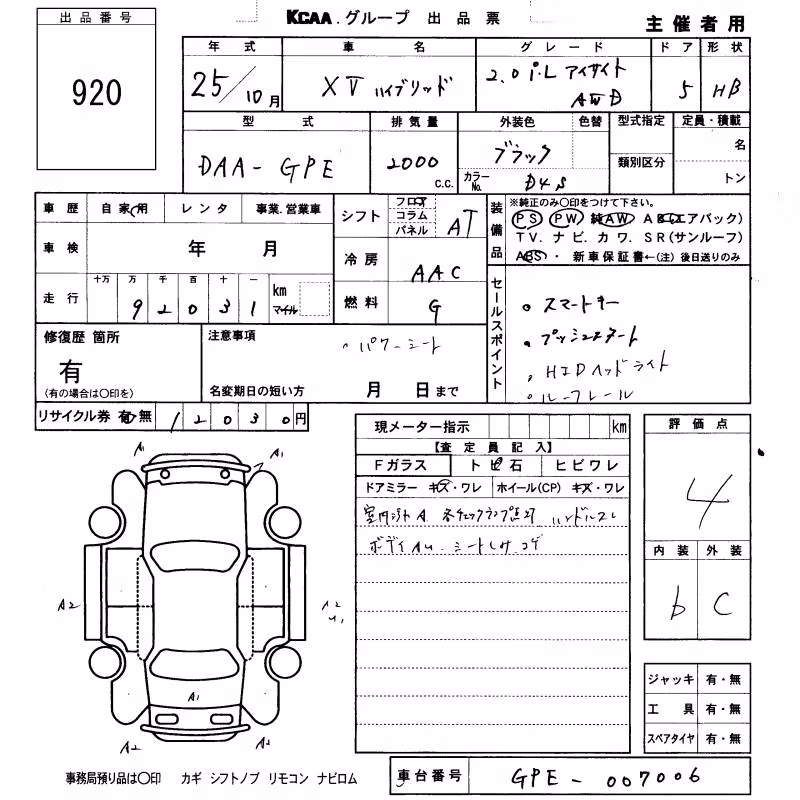 出品番号
920
KCAA.グループ 出品票
主催者用
年式 車名 グレード ドア 形状
25/10月 XV ハイブリッド 2.0i-L アイサイト AWD 5 HB
型式 排気量 外装色 色替 型式指定 定員・積載
DAA-GPE 2000 C.C. ブラック カラーNo. D4S 類別区分 名 トン
車歴 自家用 レンタ 事業.営業車
車検 年 月
走行 十万 万 千 百 十 一 km マイル
9 2 0 3 1
シフト フロア コラム パネル AT
冷房 AAC
燃料 G
装備品
※純正のみ○印をつけて下さい。
PS PW 純AW AB(エアバック)
TV.ナビ.カワ.SR(サンルーフ)
ABS・新車保証書←(注)後日送りのみ
セールスポイント
スマートキー
プッシュスタート
HIDヘッドライト
ルーフレール
修復歴 箇所
有
(有の場合は○印を)
注意事項
パワーシート
名変期日の短い方 月 日まで
リサイクル券 有・無 12030円
現メーター指示 km
【査定員記入】
Fガラス トビ石 ヒビワレ
ドアミラー キズ・ワレ ホイール(CP) キズ・ワレ
室内汚れA
ハンドルスレ
ボディAU シート コゲ
評価点
4
内装 外装
b C
A1 A1
A2 A2
A1
A2 A2
ジャッキ 有・無
工具 有・無
スペアタイヤ 有・無
事務局預り品は○印 カギ シフトノブ リモコン ナビロム
車台番号 GPE-007006